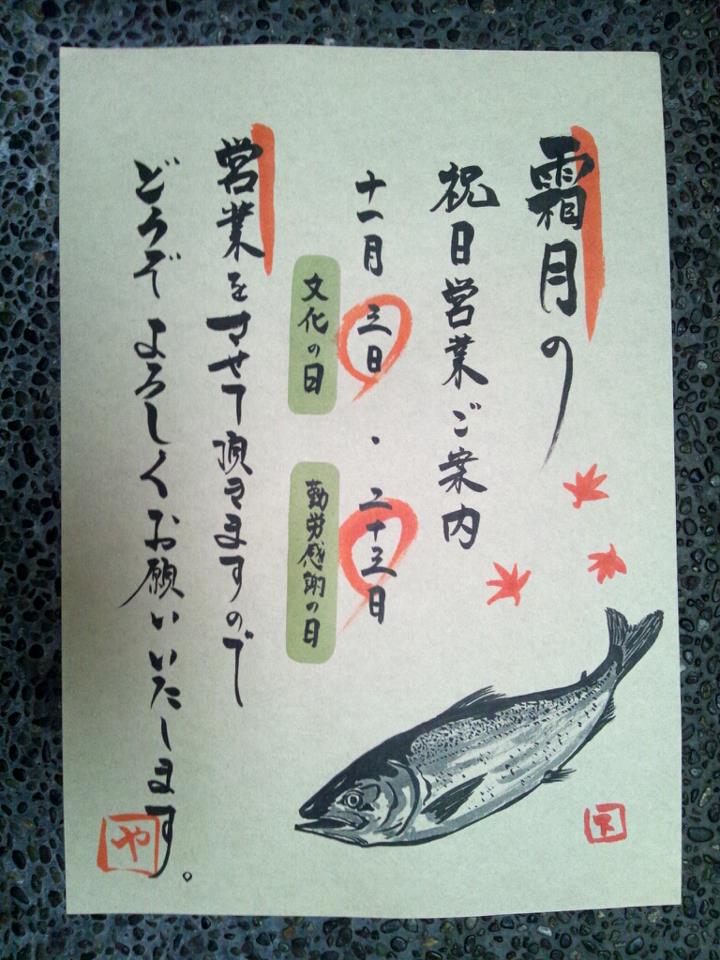 霜月の
祝日営業ご案内
十一月三日・二十三日
文化の日
勤労感謝の日
営業をさせて頂きますので
どうぞよろしくお願いいたします。
や